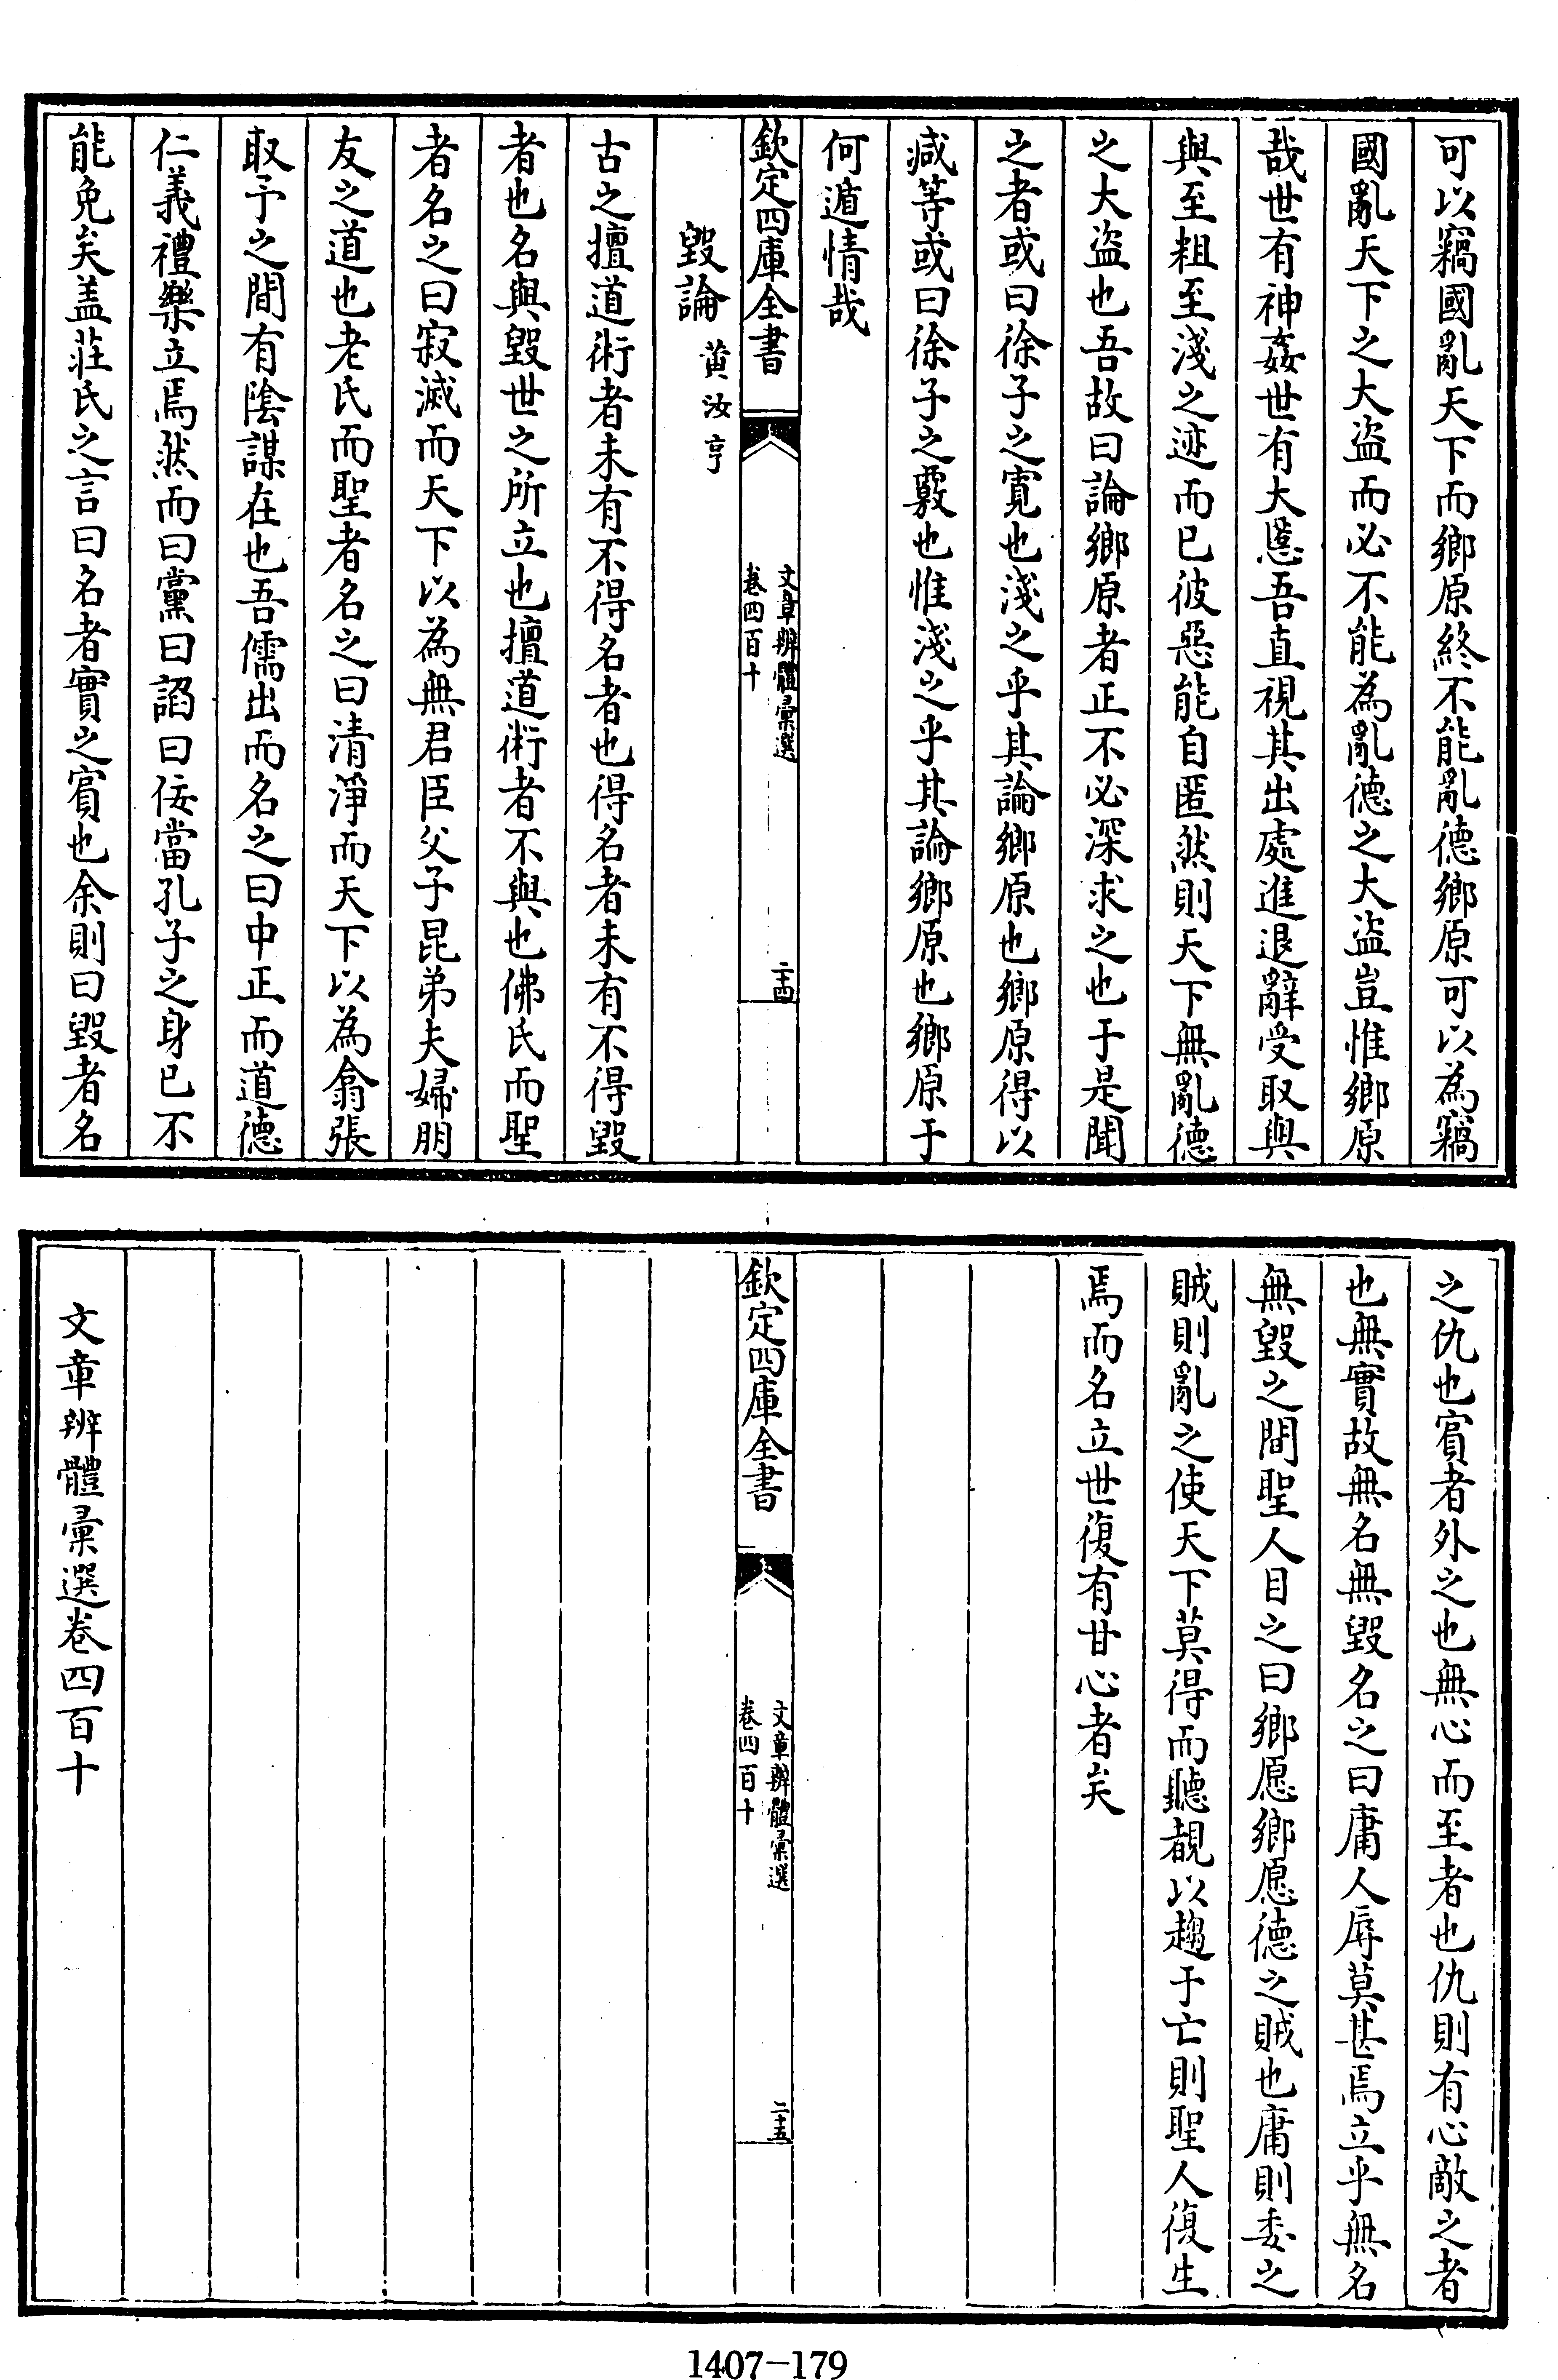 可以竊國亂天下而鄉原終不能亂德鄉原可以為竊
國亂天下之大盜而必不能為亂德之大盜豈惟鄉原
哉世有神姦世有大慝吾直視其出處進退辭受取與
與至粗至淺之迹而已彼惡能自匿然則天下無亂德
之大盜也吾故曰論鄉原者正不必深求之也于是聞
之者或曰徐子之寬也淺之乎其論鄉原也鄉原得以
減等或曰徐子之覈也惟淺之乎其論鄉原也鄉原于
何遁情哉
欽定四庫全書
文章辨體彙選
卷四百十
二十四
毀論 黄汝亨
古之擅道術者未有不得名者也得名者未有不得毀
者也名與毀世之所立也擅道術者不與也佛氏而聖
者名之曰寂滅而天下以為無君臣父子昆弟夫婦朋
友之道也老氏而聖者名之曰清淨而天下以為翕張
取予之間有陰謀在也吾儒出而名之曰中正而道德
仁義禮樂立焉然而曰黨曰諂曰佞當孔子之身已不
能免矣盖莊氏之言曰名者實之賓也余則曰毀者名
之仇也賓者外之也無心而至者也仇則有心敵之者
也無實故無名無毀名之曰庸人辱莫甚焉立乎無名
無毀之間聖人目之曰鄉愿鄉愿德之賊也庸則委之
賊則亂之使天下莫得而聽覩以趨于亡則聖人復生
焉而名立世復有甘心者矣
欽定四庫全書
文章辨體彙選
卷四百十
二十五
文章辨體彙選卷四百十
1407-179